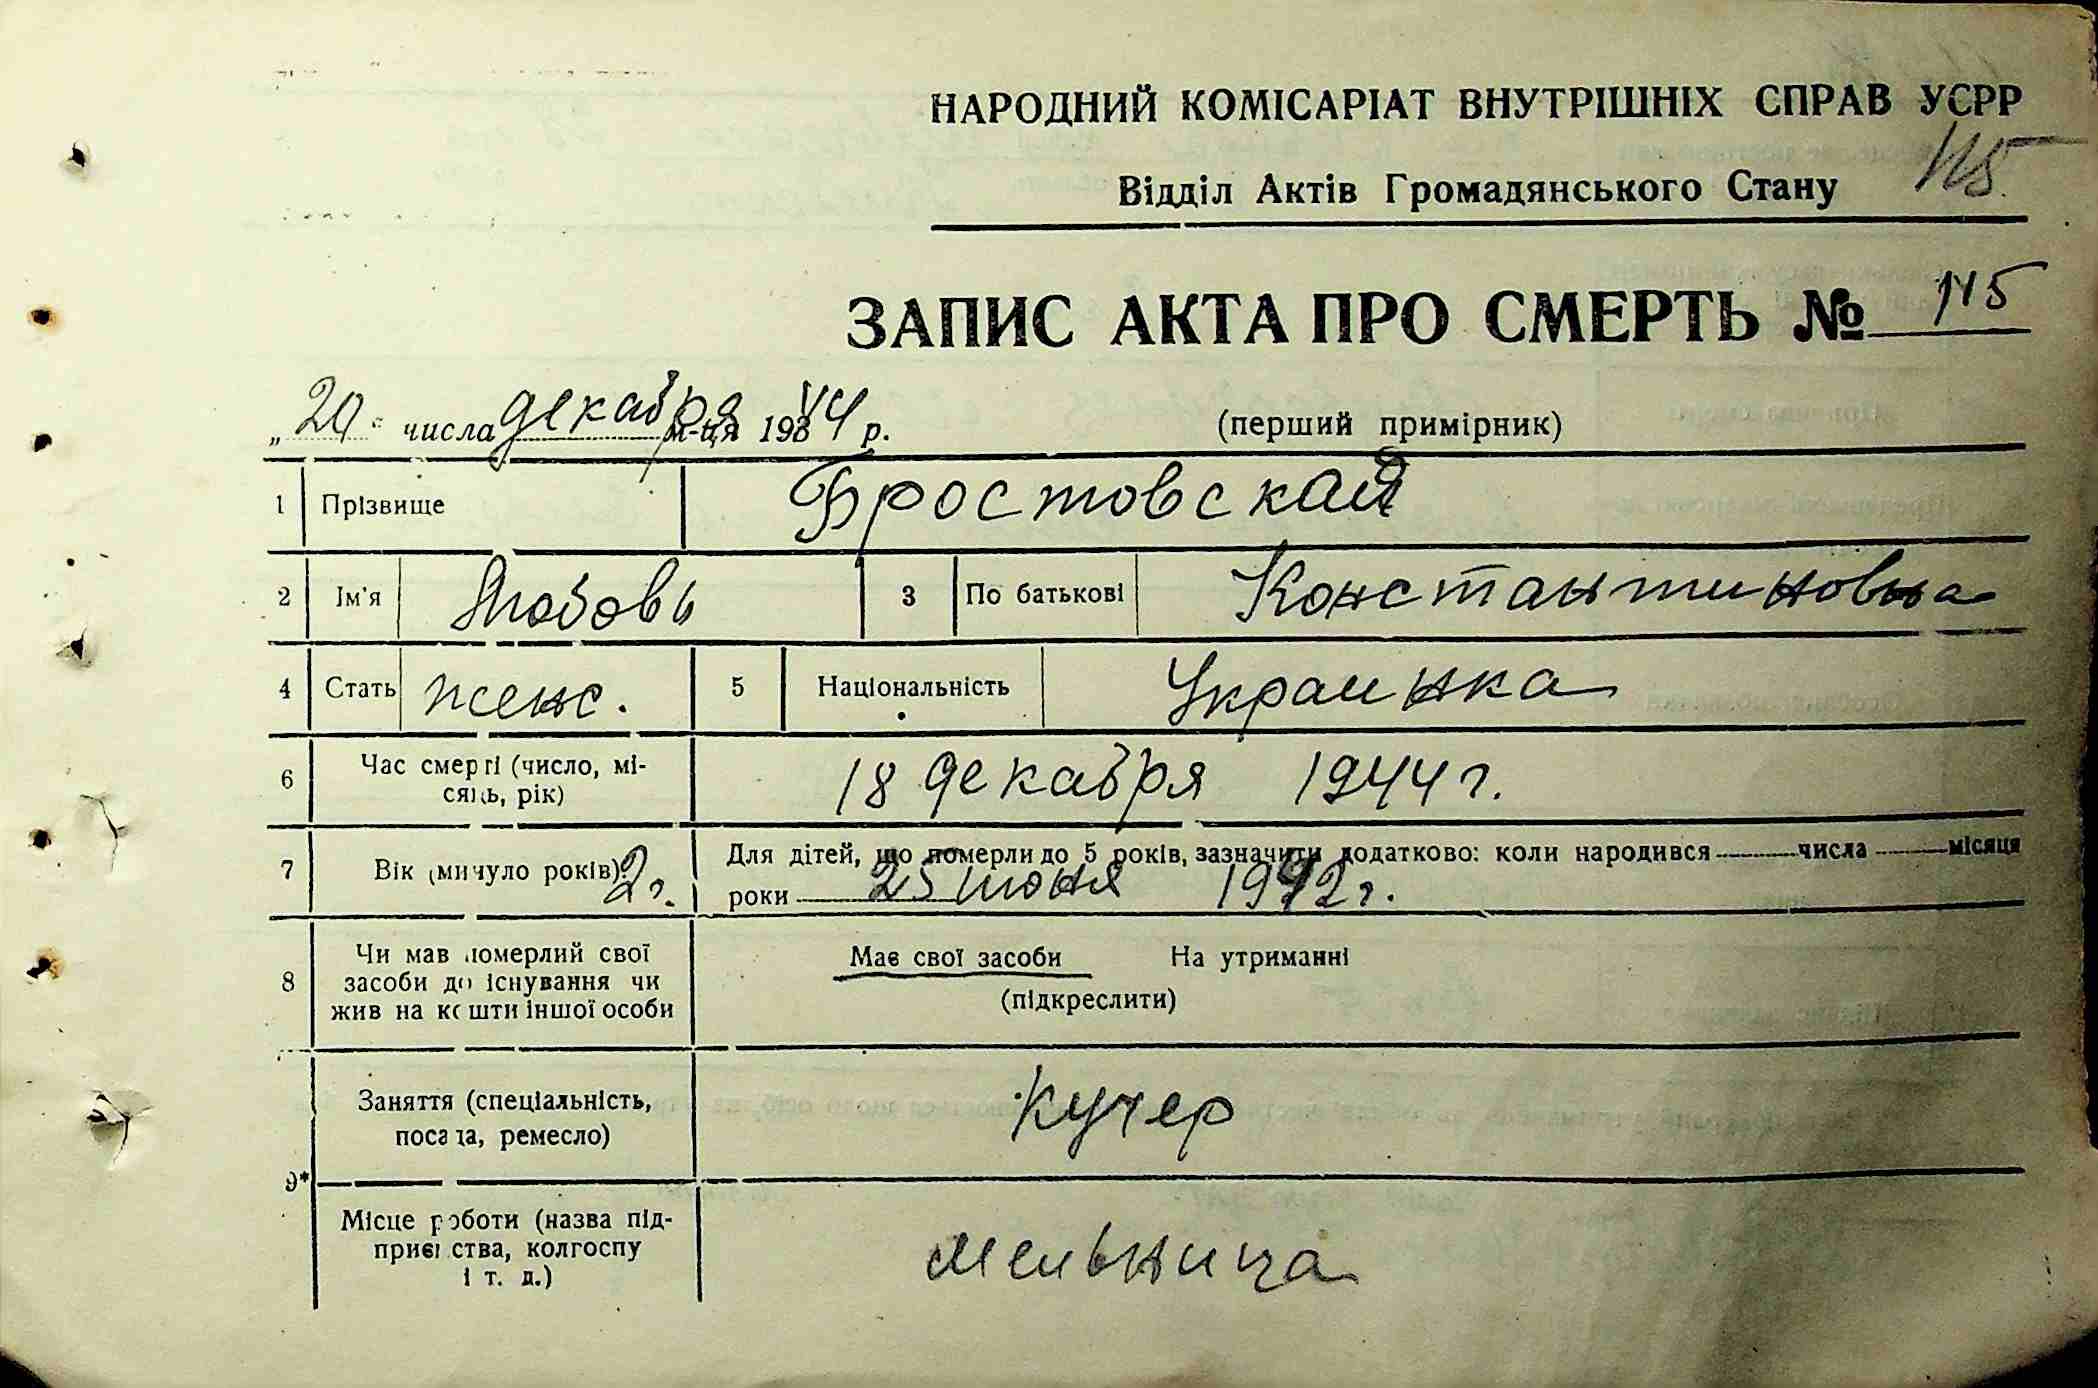 НАРОДНИЙ КОМІСАРІАТ ВНУТРІШНІХ СПРАВ УСРР
115
Відділ Актів Громадянського Стану
ЗАПИС АКТА ПРО СМЕРТЬ № 115
„20“ числа декабря м-ця 1944 р. (перший примірник)
1 Прізвище Бростовская
2 Ім'я Любовь 3 По батькові Константиновна
4 Стать женс. 5 Національність Украинка
6 Час смерті (число, мі-
сяць, рік) 18 декабря 1944 г.
7 Вік (минуло років) 2 г. Для дітей, що померли до 5 років, зазначити додатково: коли народився числа місяця
роки 25 июня 1942 г.
8 Чи мав померлий свої
засоби до існування чи
жив на кошти іншої особи
Має свої засоби На утриманні
(підкреслити)
9*
Заняття (спеціальність,
посада, ремесло) Кучер
Місце роботи (назва під-
приємства, колгоспу
і т. д.) мельница